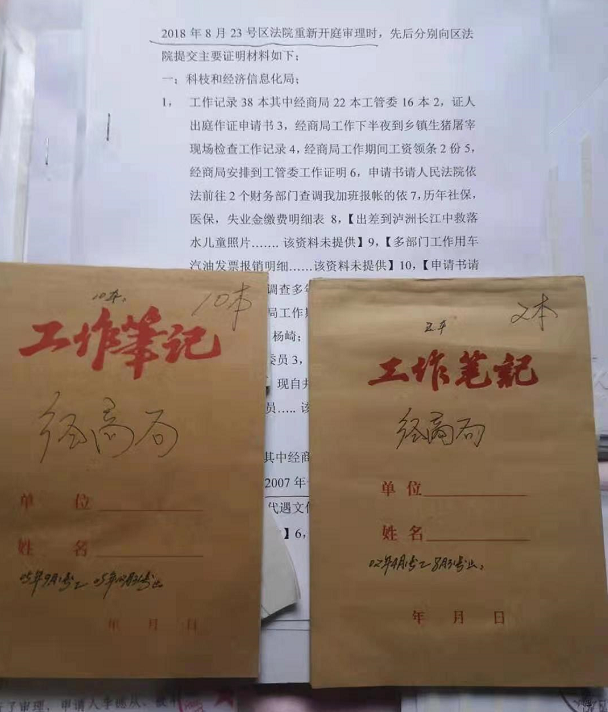 2018 年 8 月 23 号区法院重新开庭审理时，先后分别向区法
院提交主要证明材料如下；
一；科技和经济信息化局；
1， 工作记录 38 本其中经商局 22 本工管委 16 本 2，证人
出庭作证申请书 3，经商局工作下半夜到乡镇生猪屠宰
现场检查工作记录 4，经商局工作期间工资领条 2 份 5，
经商局安排到工管委工作证明 6，申请书请人民法院依
法前往 2 个财务部门查调我加班报帐的依 7，历年社保，
医保，失业金缴费明细表 8，【出差到泸洲长江中救落
水儿童照片……. 该资料未提供】9，【多部门工作用车
汽油发票报销明细……该资料未提供】10，【申请书请
调查多年
局工作期
杨崎；
委员 3，
现自共
员….. 该
其中经商
2007 年
代遇文件
】6，
10本，
10本
工作筆记
经商局
单 位
姓 名
05年9月1号
年 月 日
2本
工作笔記
经商局
单 位
姓 名
02年4月1号
年 月 日
了审理，申请人李